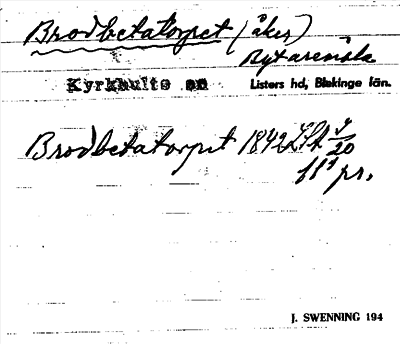 Brodbetatorpet (åker)
Rytarenäla
Kyrkhults sn Listers hd, Blekinge län.
Brodbetatorpit 1842 LSk
J. SWENNING 194